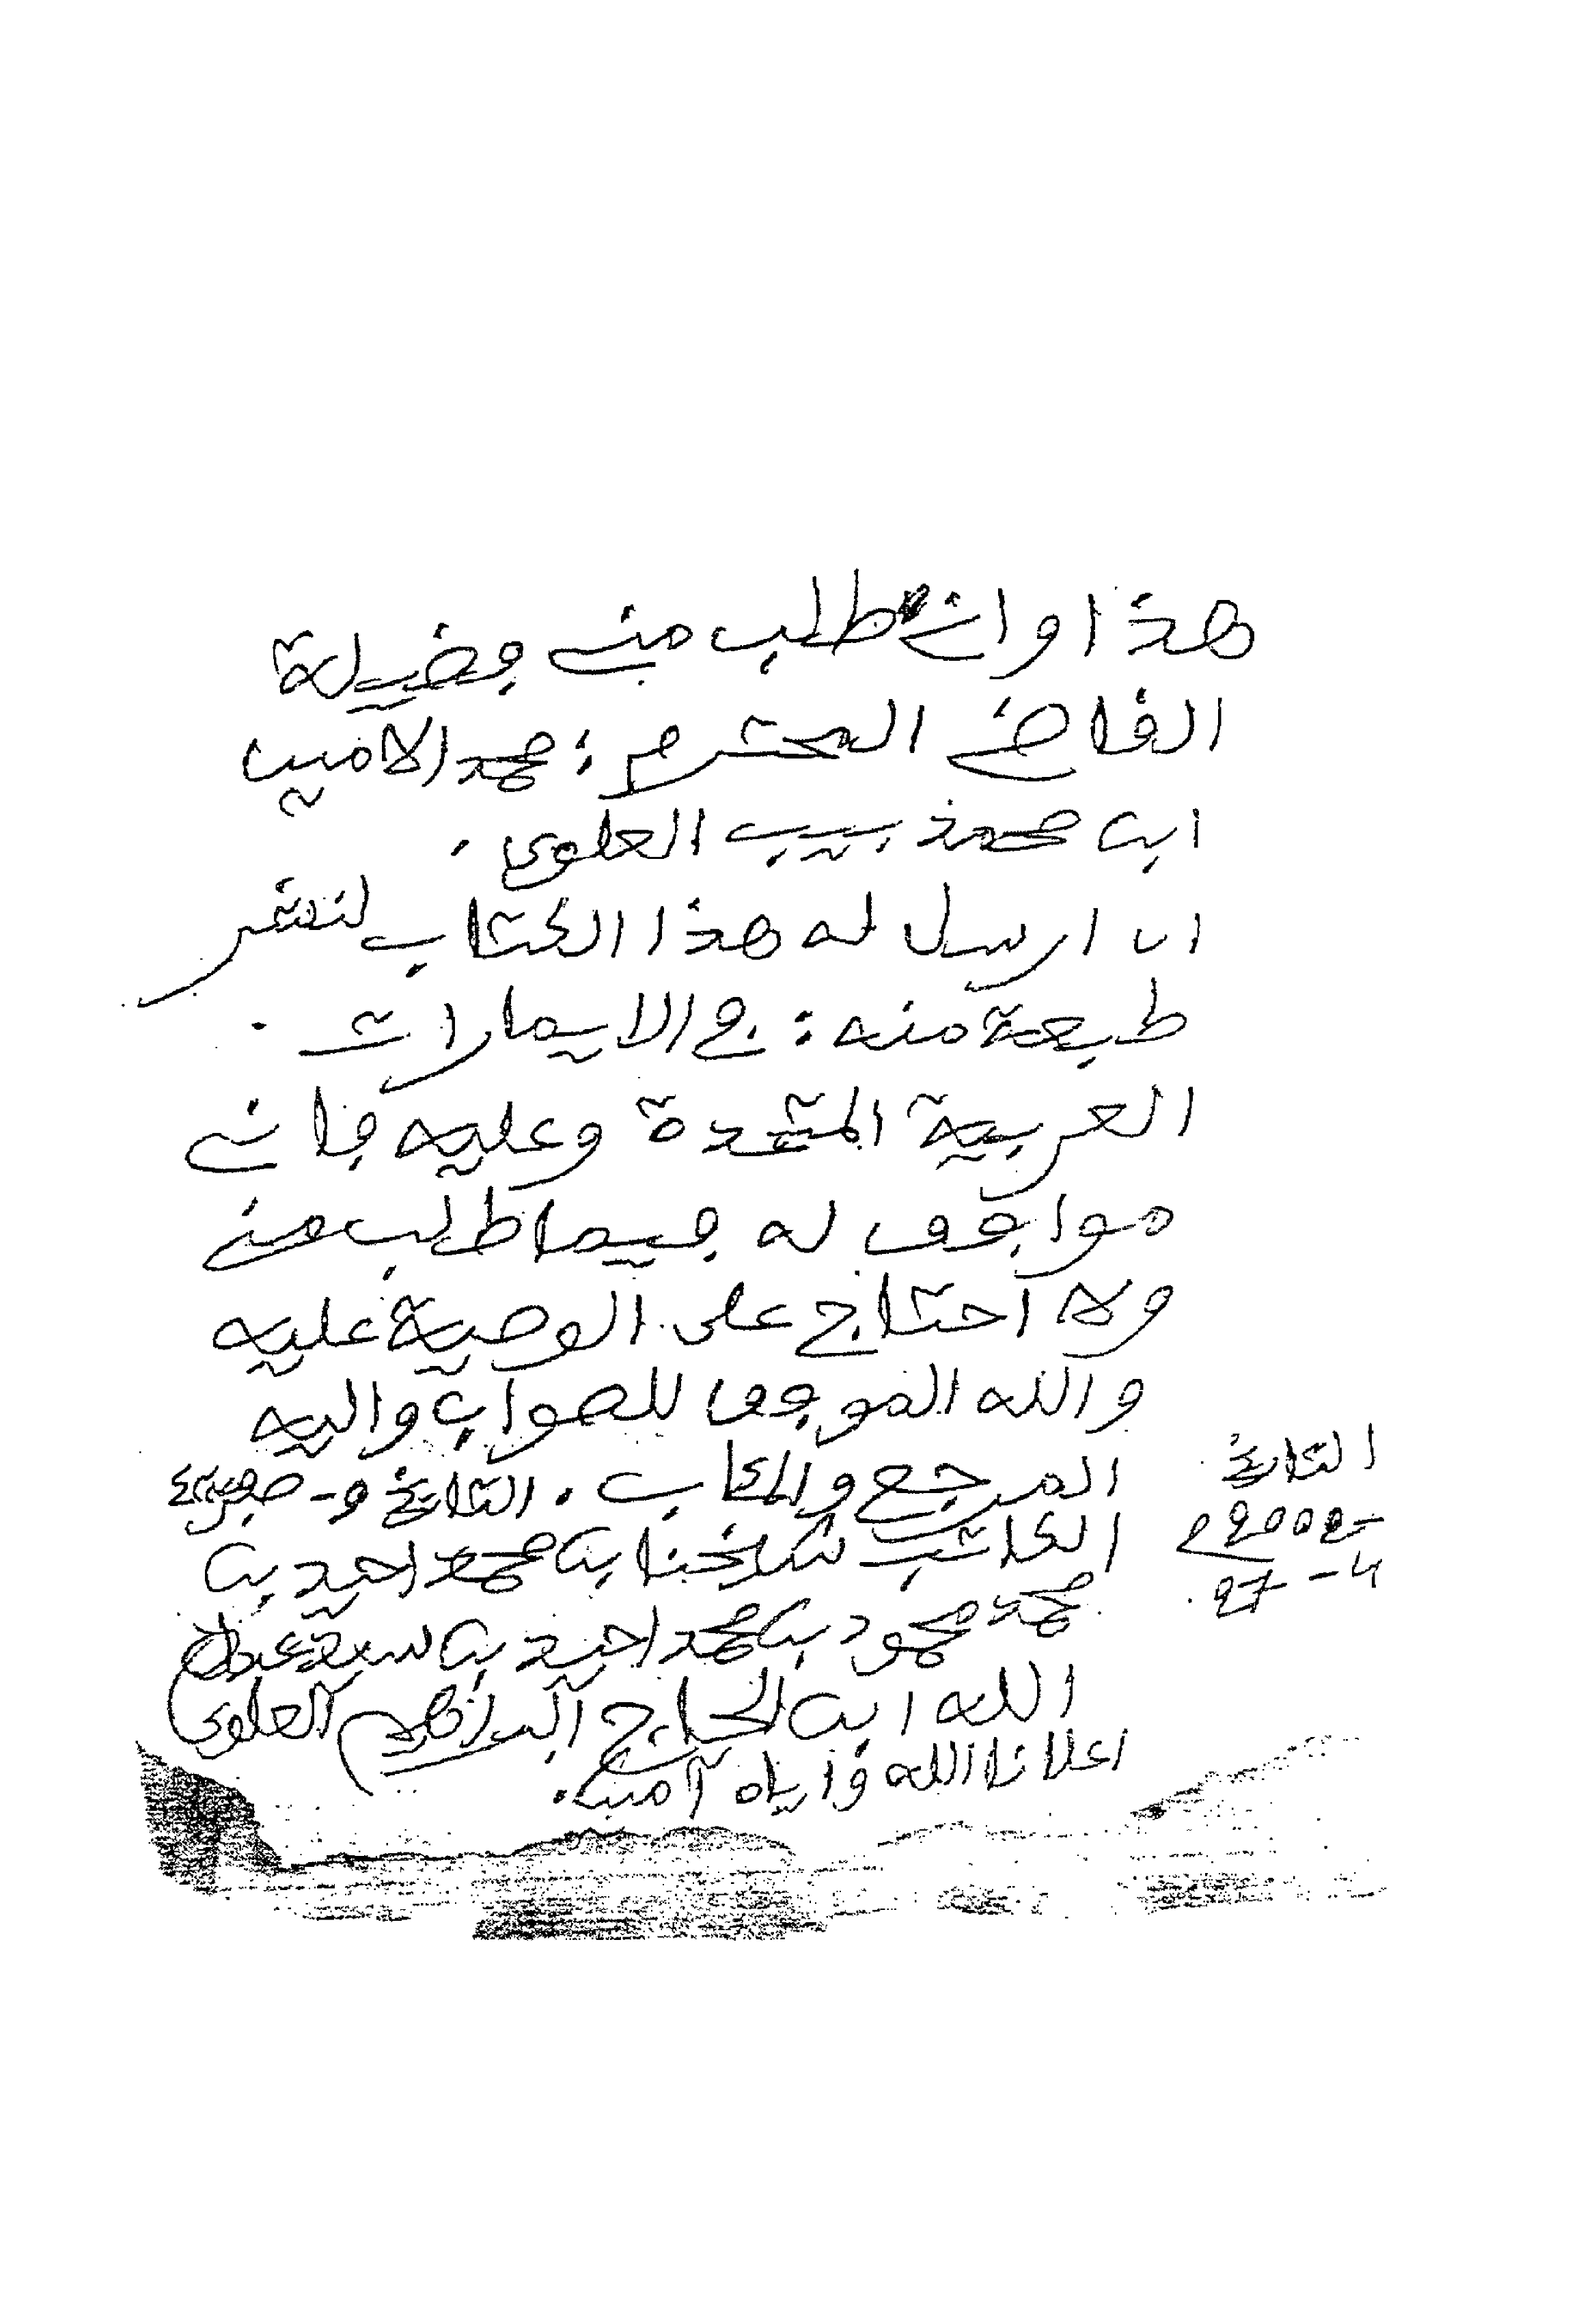 هذا وانى طلب منى فضيلة
القاضى المحترم: محمد الامين
ابن محمذ بيب العلوى.
ان ارسل له هذا الكتاب لنشر
طبعة منه: فى الايمارات
العربية المتحدة وعليه فانى
موافق له فيما طلب منى
ولا احتاج على الوصية عليه
والله الموفق للصواب واليه
المرجع والمئاب. التاريخ 9- صفر
التاريخ
الكاتب شيخنا بن محمد احيد بن
27-4
محمد محمود بن محمد احيد بن سيد عبد
الله ابن الحاج ابراهيم العلوى
اعاننا الله واياه آمين.